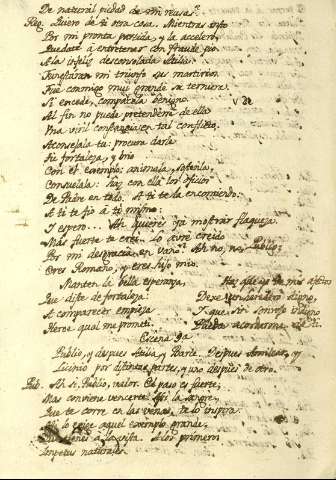 De natural piedad de mi reusas?
Reg. Quiero de ti otra cosa. Mientras insto
Por mi pronta partida, y la acelero,
Quedate á entretener con fraude pio
A la infeliz desconsolada Atilia
Funestaran mi triunfo sus martirios
Fue conmigo muy grande su ternura.
Si excede, compadecela benigno.
Al fin no puede pretender de ella
Una viril constancia en tal conflicto.
Aconsejala tu: procura darla
Su fortaleza, y brio
Con el exemplo: animala, y
Consuelala: haz con ella los oficios
De Padre en todo. A ti te la encomiendo:
A ti te fio á ti mismo:
Y espero ... Ah quieres ya mostrar flaqueza.
Mas fuerte te creí. Lo avré creido
Por mi desgracia en vano? Ah no, no, Publio:
Eres Romano, y eres hijo mio.
Manten la bella esperanza,
Que diste de fortaleza:
A comparecer empieza
Heroe, qual me prometi.
Haz que
Dexe un
Y que, sin sonrojo indigno
Pueda acordarme de ti.
Escena 9a
Publio, y despues Atilia y Barce. Despues Amilcar, y
Licinio por distintas partes, y uno despues de otro.
Pub. Ah si, Publio, valor. El paso es fuerte;
Mas conviene vencerte. Assi la sangre,
Que te corre en las venas, te lo inspira.
Assi lo exige aquel exemplo grande,
Que tienes á la vista. A los primeros
Impetus naturales